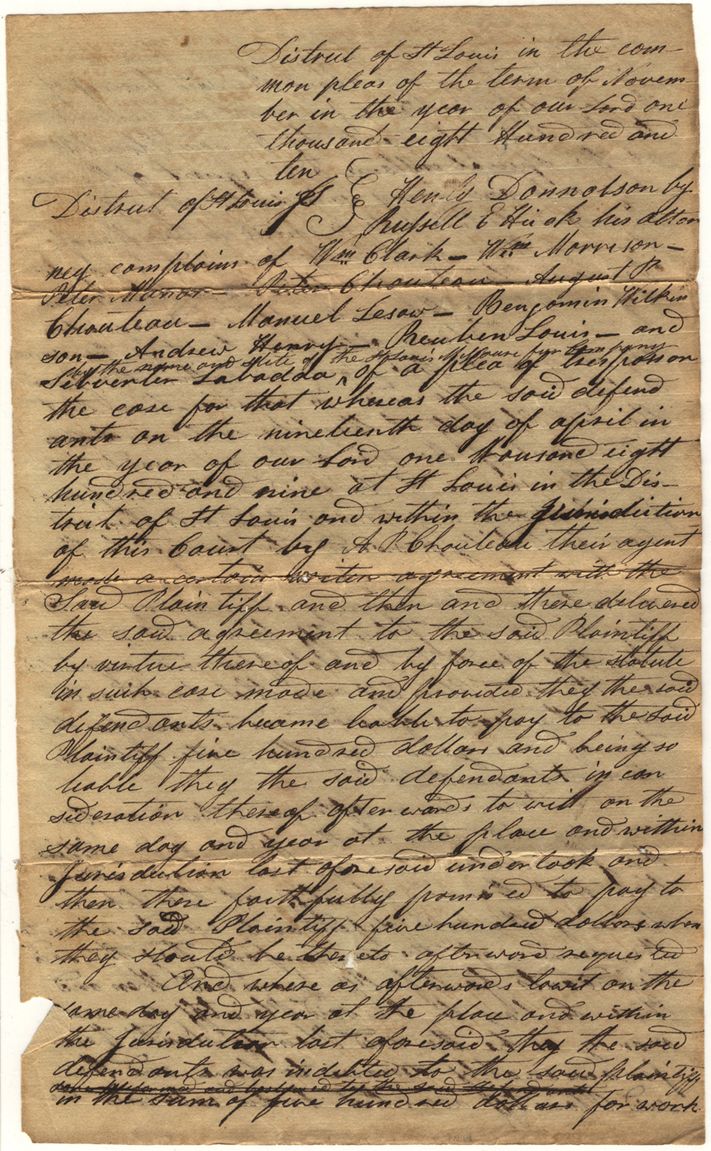 District of St Louis in the com-
mon pleas of the term of Novem-
ber in the year of our Lord one
thousand eight Hundred and
ten
District of St Louis Ss } Henly Donnolson by
Russell E Hicok his attor
ney complains of Wm Clark - Wm Morrison -
Peter Manor - Peter Chouteau August P
Chouteau - Manuel Lesaw - Benjamin Wilkin
son - Andrew Henry - Reuben Louis - and
by the name and stile of the St Louis Missoure fur Company
Silvester Labadda ^ of a plea of trespass on
the case for that whereas the said defend
ants on the nineteenth day of april in
the year of our Lord one thousand eight
hundred and nine at St Louis in the Dis-
trict of St Louis and within the Jurisdiction
of this Court by A P Chouteau their agent
made a certain writen agreement with the
Said Plaintiff and then and there delivered
the said agreement to the said Plaintiff
by virtue thereof and by force of the statute
in such case made and provided they the said
defendants became liable to pay to the said
Plaintiff five hundred dollars and being so
liable they the said defendants in con
sideration thereof afterwards to wit on the
same day and year at the place and within
Jurisdiction last aforesaid undertook and
then there faithfully promised to pay to
the said Plaintiff five hundred dollars when
they should be thereto afterward requested
And where as afterwards towit on the
same day and year at the place and within
the jurisdiction last aforesaid they the said
defendants was indebted to the said plaintiff
in the sum of five hundred dollars for work